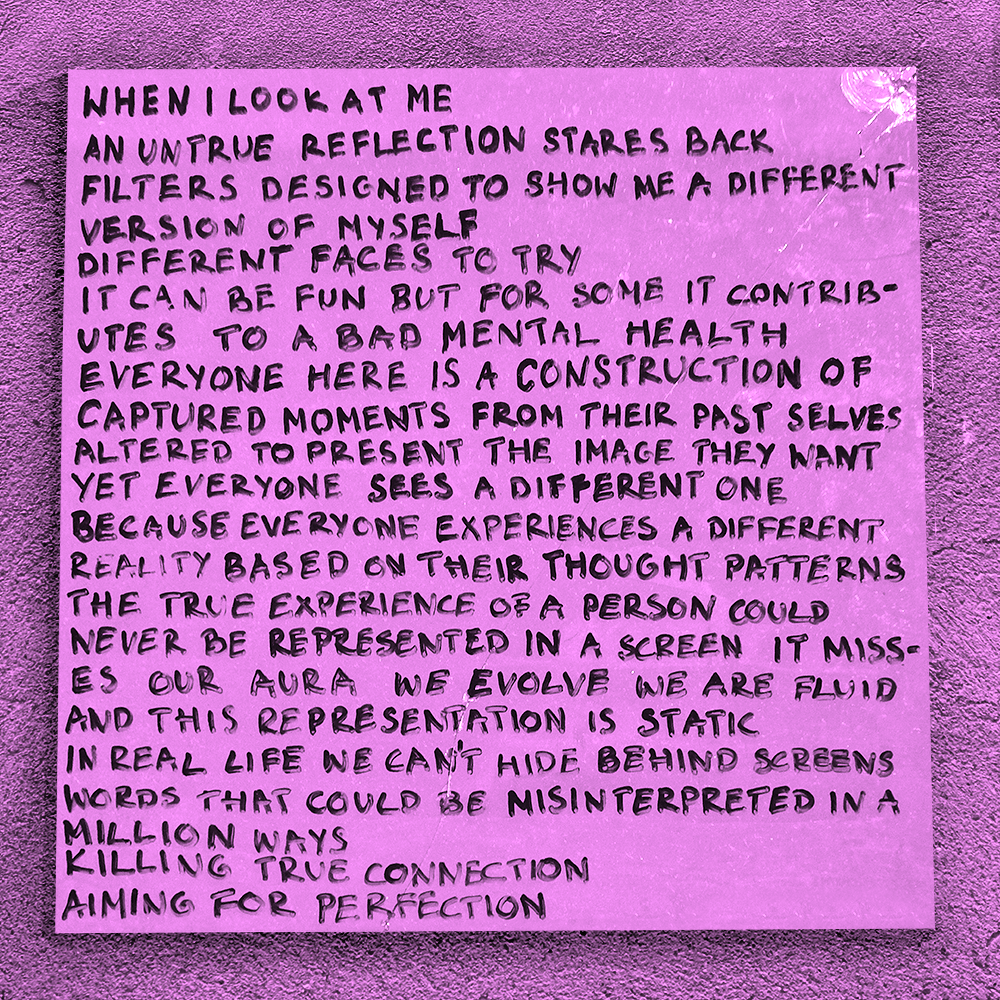 WHEN I LOOK AT ME
AN UNTRUE REFLECTION STARES BACK
FILTERS DESIGNED TO SHOW ME A DIFFERENT
VERSION OF MYSELF
DIFFERENT FACES TO TRY
IT CAN BE FUN BUT FOR SOME IT CONTRIB-
UTES TO A BAD MENTAL HEALTH
EVERYONE HERE IS A CONSTRUCTION OF
CAPTURED MOMENTS FROM THEIR PAST SELVES
ALTERED TO PRESENT THE IMAGE THEY WANT
YET EVERYONE SEES A DIFFERENT ONE
BECAUSE EVERYONE EXPERIENCES A DIFFERENT
REALITY BASED ON THEIR THOUGHT PATTERNS
THE TRUE EXPERIENCE OF A PERSON COULD
NEVER BE REPRESENTED IN A SCREEN IT MISS-
ES OUR AURA WE EVOLVE WE ARE FLUID
AND THIS REPRESENTATION IS STATIC
IN REAL LIFE WE CAN'T HIDE BEHIND SCREENS
WORDS THAT COULD BE MISINTERPRETED IN A
MILLION WAYS
KILLING TRUE CONNECTION
AIMING FOR PERFECTION